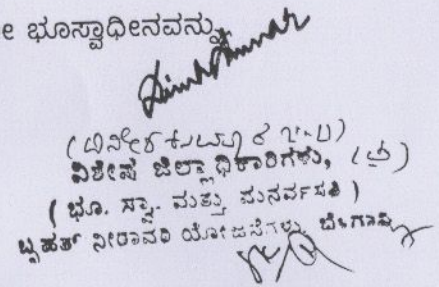 ೀ ಭೂಸ್ವಾಧೀನವನ್ನು
(ದಿನೇಶ ಕುಮಾರ
ವಿಶೇಷ ಜಿಲ್ಲಾಧಿಕಾರಿಗಳು, (ಪ್ರ)
( ಭೂ. ಸ್ವಾ. ಮತ್ತು ಪುನರ್ವಸತಿ )
ಬೃಹತ್ ನೀರಾವರಿ ಯೋಜನೆಗಳು, ಬೆಳಗಾವಿ